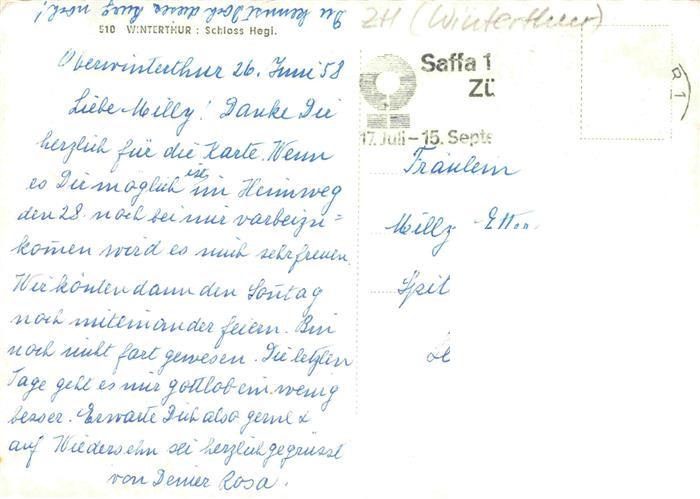 Du kennst doch diese Burg noch!
510 WINTERTHUR: Schloss Hegi.
ZH (Winterthur)
Saffa 1
Zü
17. Juli - 15. Septe
Oberwinterthur 26. Juni 58
Liebe Milly! Danke Die
herzlich für die Karte. Wenn
es Die möglich ist im Heimweg
den 28. noch bei mir vorbeizu=
komen wird es mich sehr freuen.
Wir könten dann den Sontag
noch miteinander feiern. Bin
noch nicht fort gewesen. Die letzten
Tage geht es mir gottlob ein wenig
besser. Erwarte Dich also gerne &
auf Wiedersehn sei herzlich gegrüsst
von Deiner Rosa.
Fräulein
Milly
Spit